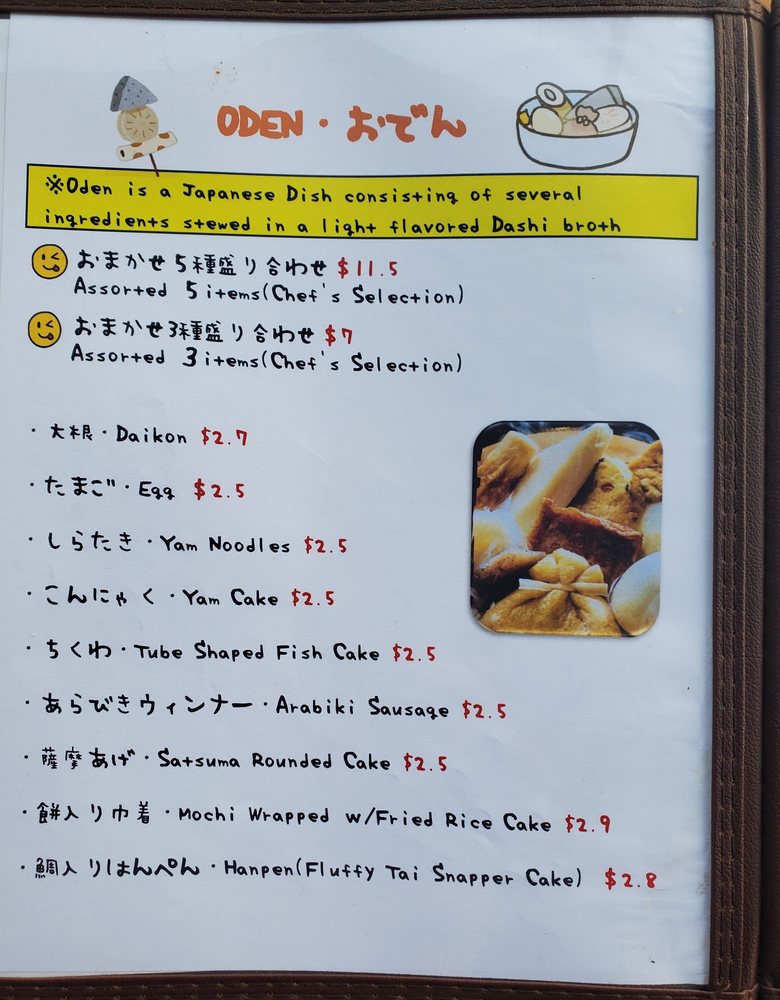 ODEN・おでん
※Oden is a Japanese Dish consisting of several
ingredients stewed in a light flavored Dashi broth
おまかせ5種盛り合わせ $11.5
Assorted 5 items(Chef's Selection)
おまかせ3種盛り合わせ $7
Assorted 3 items(Chef's Selection)
・大根・Daikon $2.7
・たまご・Egg $2.5
・しらたき・Yam Noodles $2.5
・こんにゃく・Yam Cake $2.5
・ちくわ・Tube Shaped Fish Cake $2.5
・あらびきウィンナー・Arabiki Sausage $2.5
・薩摩あげ・Satsuma Rounded Cake $2.5
・餅入り巾着・Mochi Wrapped w/Fried Rice Cake $2.9
・鯛入りはんぺん・Hanpen(Fluffy Tai Snapper Cake) $2.8